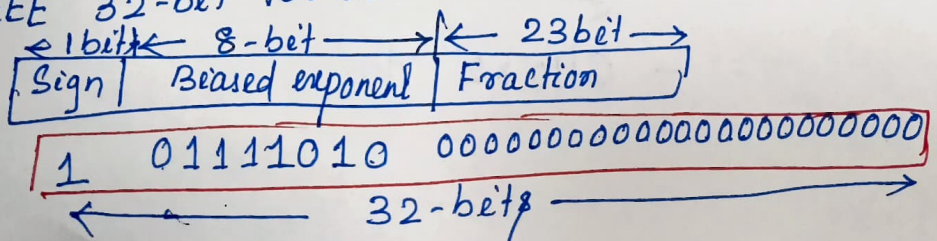 EE 32-bit
1bit 8-bit 23bit
Sign Biased exponent Fraction
1 01111010 00000000000000000000000
32-bits